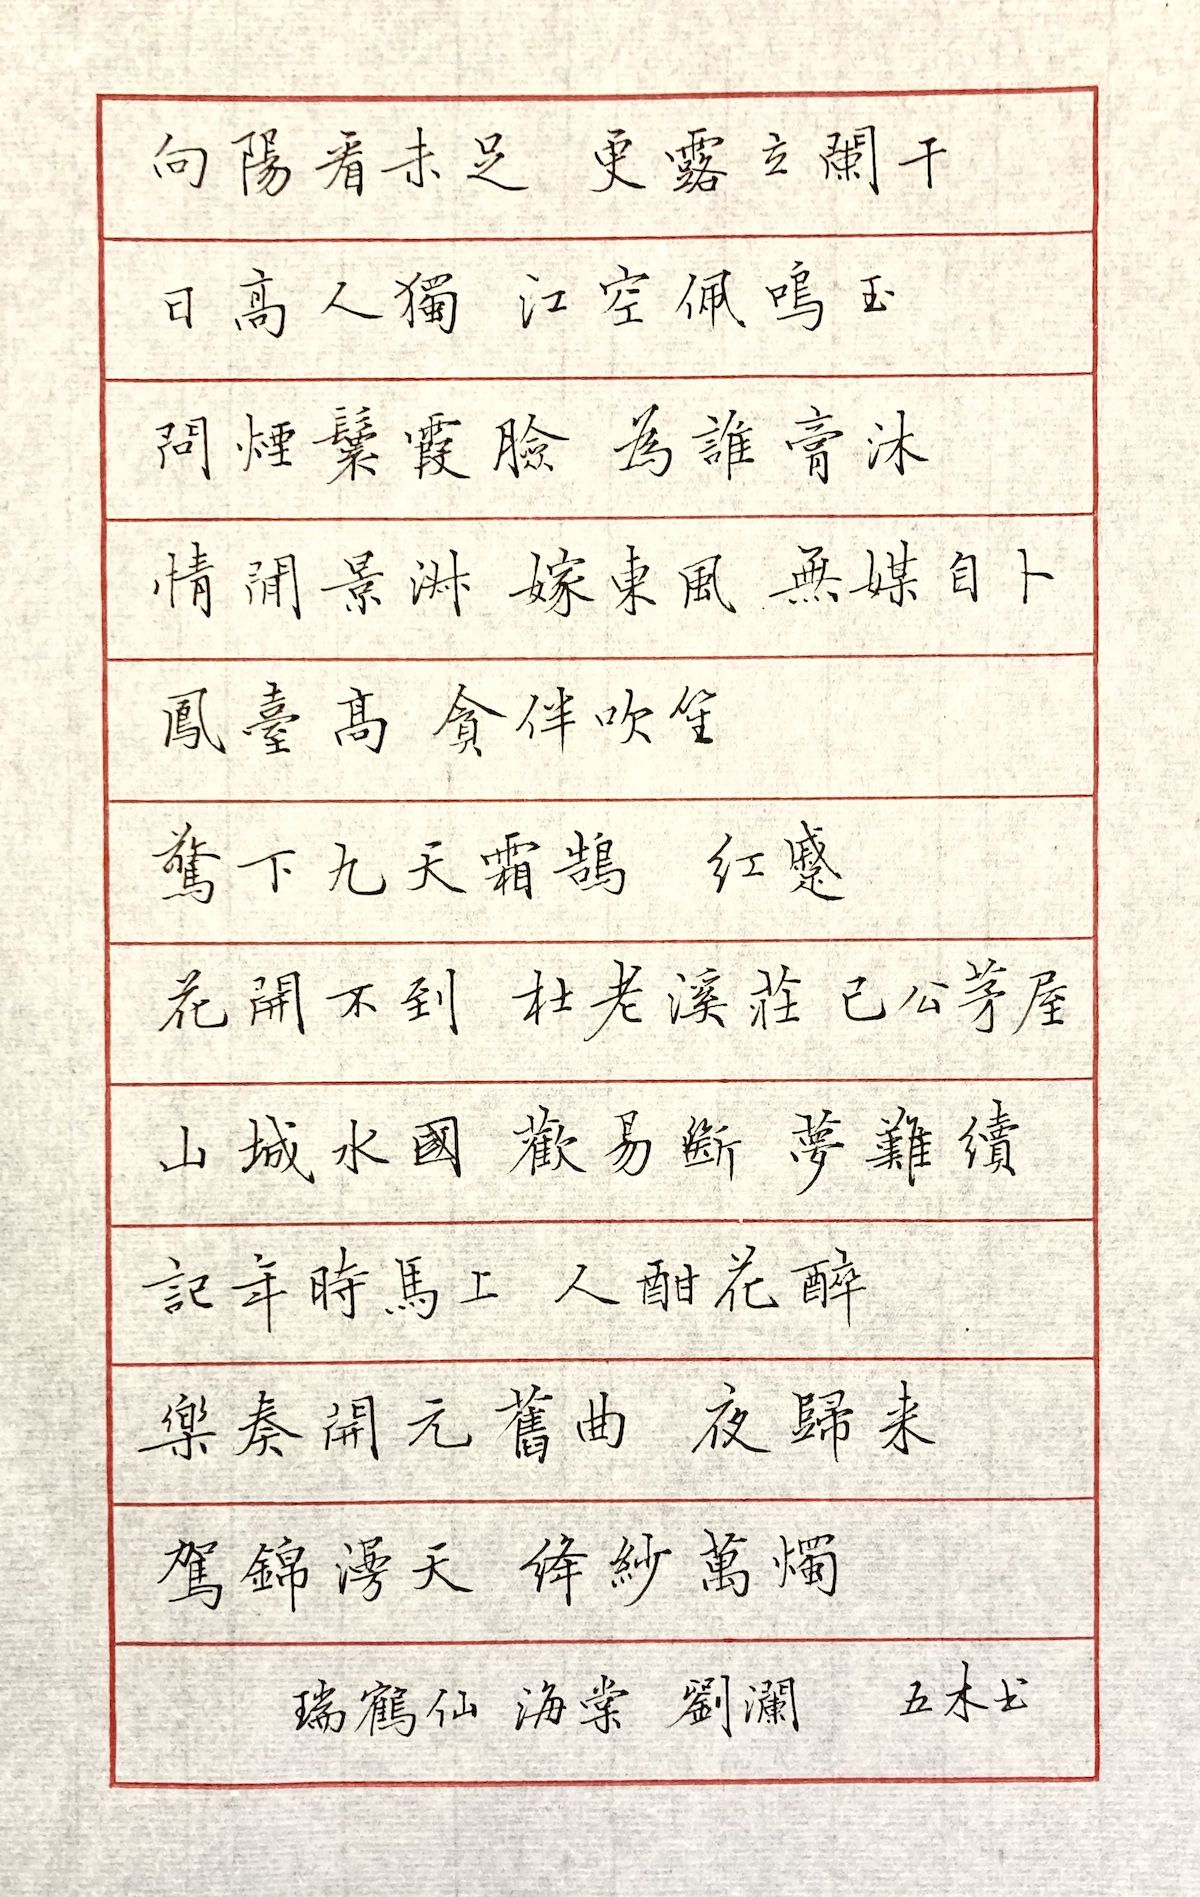 向陽看未足 更露立闌干
日高人獨 江空佩鳴玉
問煙鬟霞臉 為誰膏沐
情閒景淑 嫁東風 無媒自卜
鳳臺高 貪伴吹笙
驚下九天霜鵠 紅蹙
花開不到 杜老溪莊 已公茅屋
山城水國 歡易斷 夢難續
記年時馬上 人酣花醉
樂奏開元舊曲 夜歸来
駕錦漫天 絳紗萬燭
瑞鶴仙 海棠 劉瀾 五木书